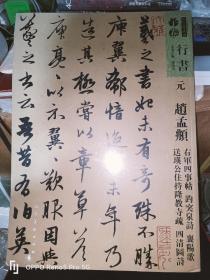 行書
元 趙孟頫
右軍四事帖 趵突泉詩 襄陽歌
送瑛公住持隆教寺疏 四清圖詩
羲之書始未有奇殊不勝
庾翼郗愔迨末年乃
造其極嘗以章草答
庾亮〻以示翼歎服因與
羲之書云吾昔有伯英
OPPO Reno5 Pro 5G